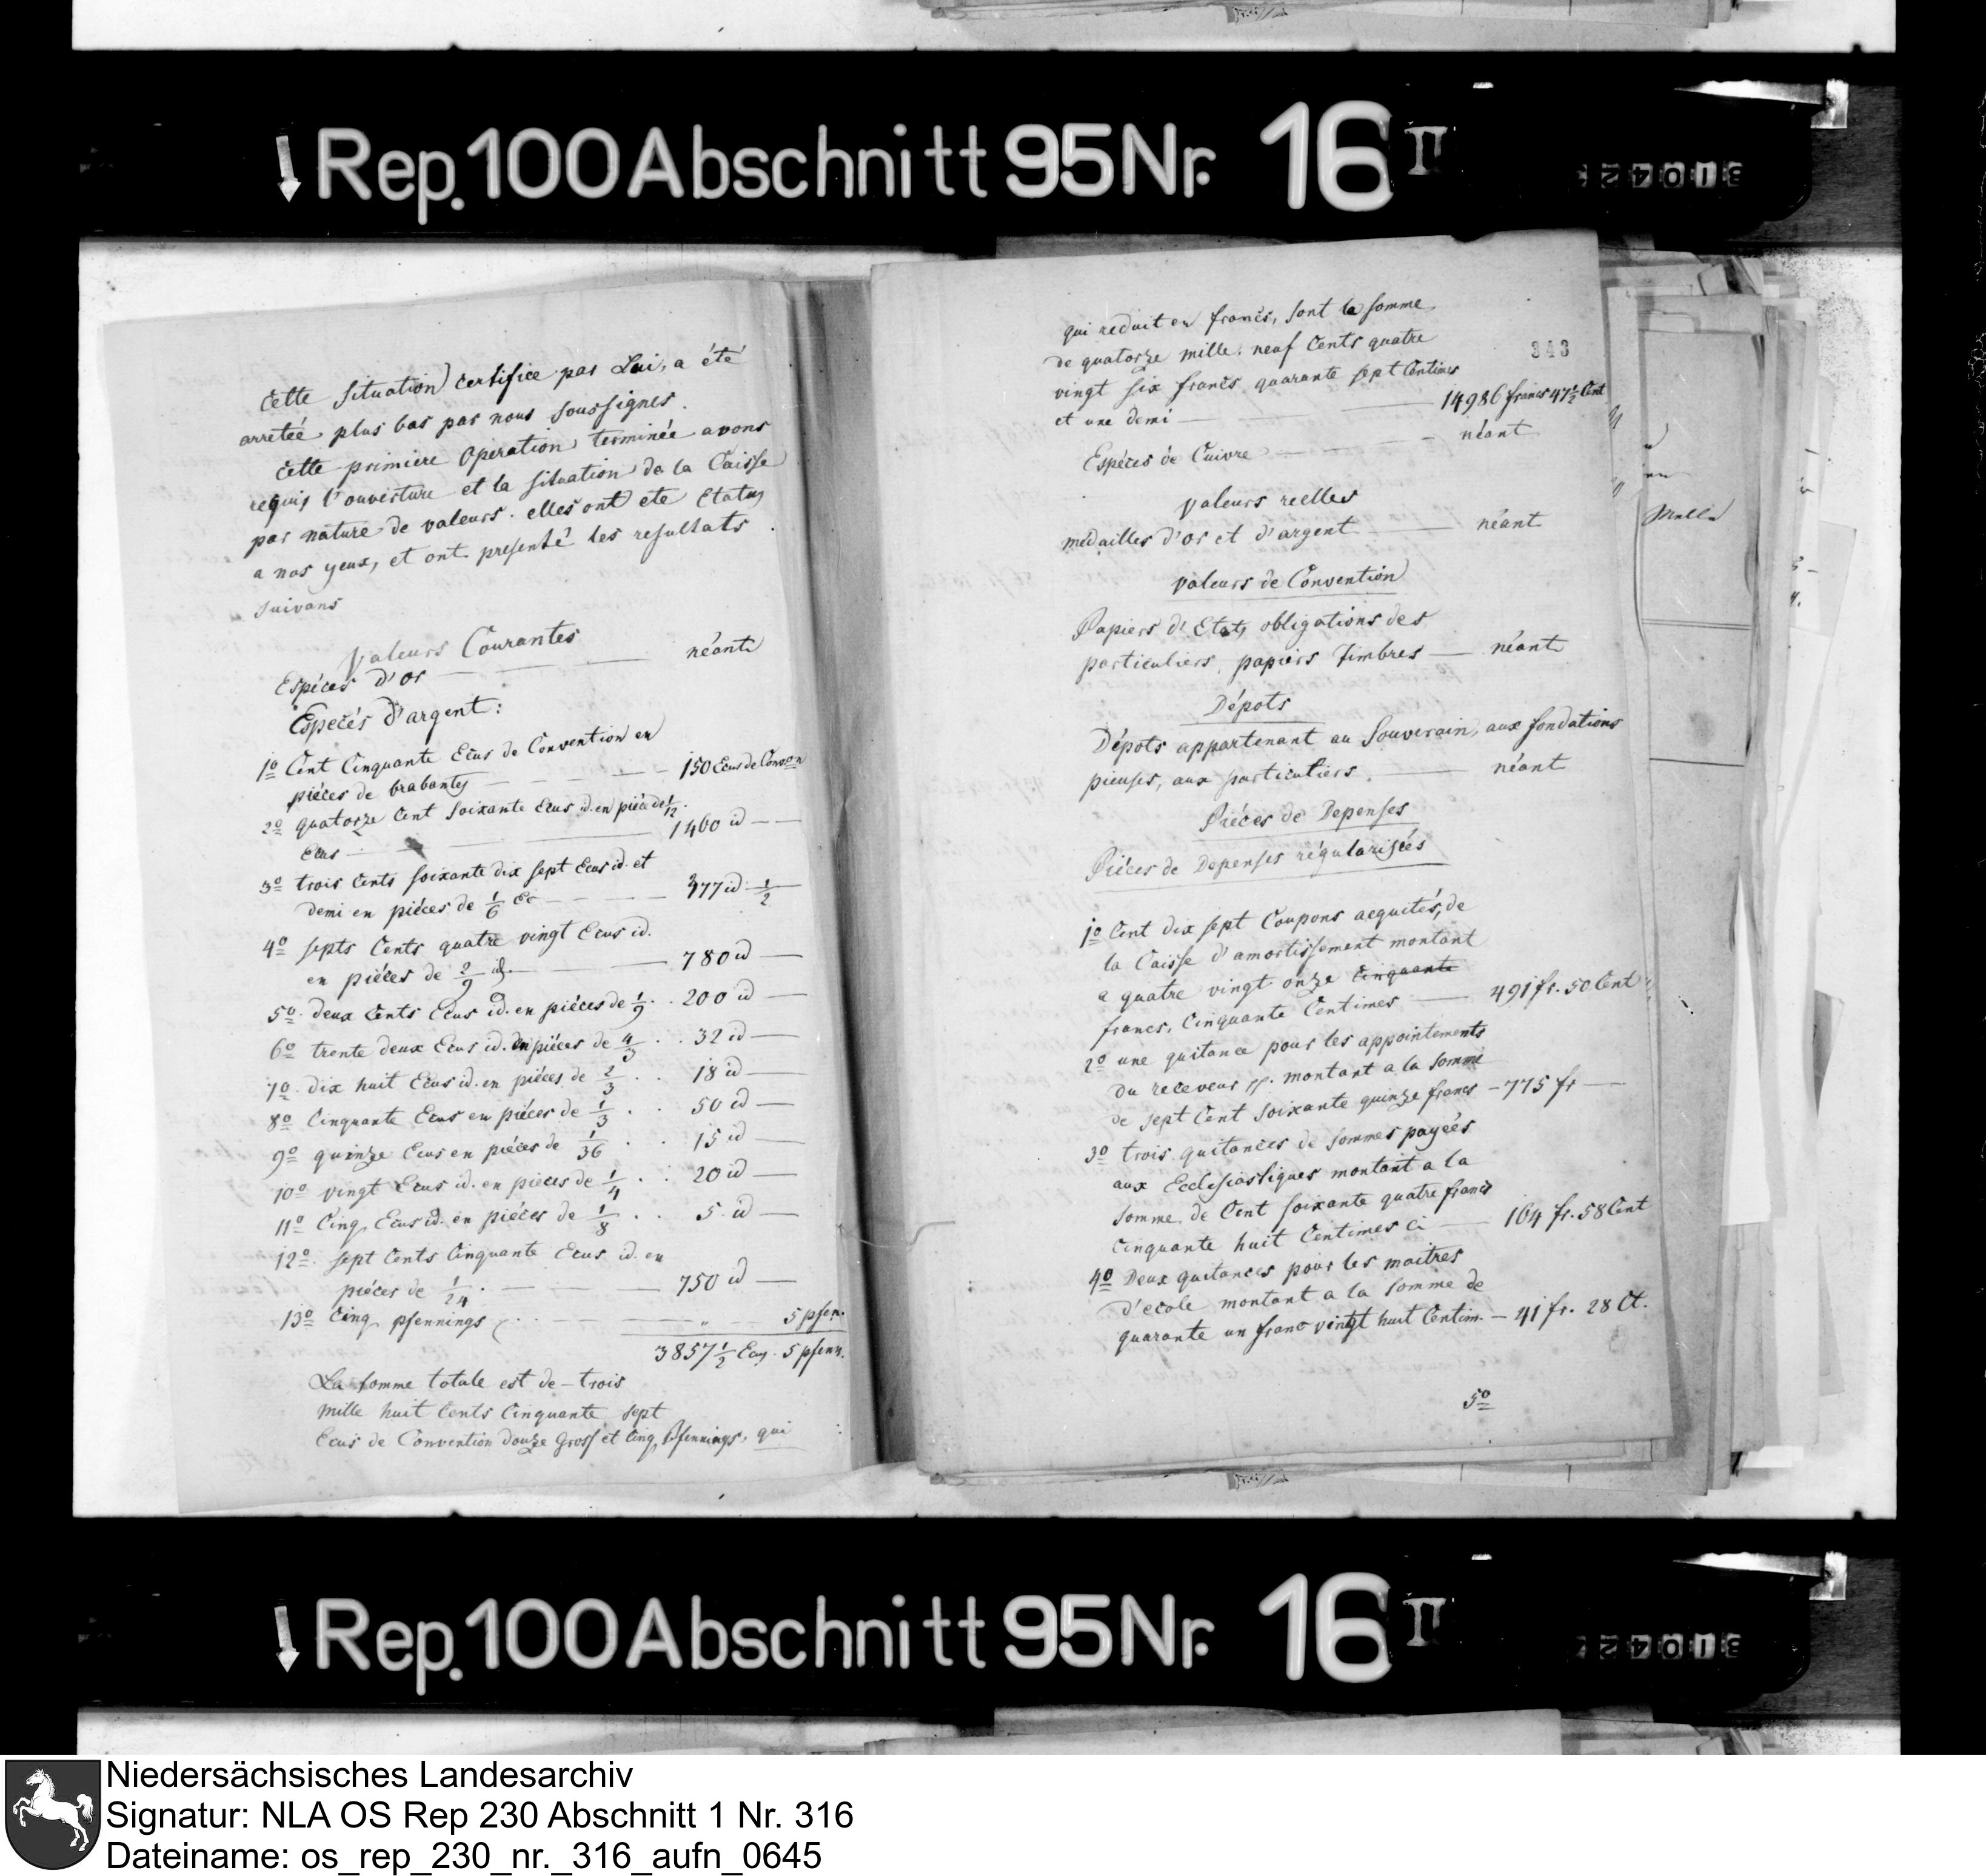 Rep. 100 Abschnitt 95 Nr. 16 II
31042
Cette Situation certifiée par Lui, a été
arretée plus bas par nous soussignés.
Cette premiere Operation terminée avons
requis l'ouverture et la situation de la Caisse
par nature de valeurs. elles ont eté Etatus
a nos yeux, et ont presenté les resultats
suivans
Valeurs Courantes
Espéces d'or néant
Espéces d'argent:
1o Cent Cinquante Ecus de Convention en
piéces de brabants 150 Ecus de Convon
2o quatorze Cent Soixante Ecus id. en piéce de 1/12
Ecus 1460 id
3o trois Cents soixante dix sept Ecus id. et
demi en piéces de 1/6 Ec 377 id 1/2
4o septs Cents quatre vingt Ecus id.
en piéces de 2/9 id. 780 id
5o deux Cents Ecus id. en piéces de 1/9 . . 200 id
6o trente deux Ecus id. en piéces de 4/3 . . 32 id
7o dix huit Ecus id. en piéces de 2/3 . . 18 id
8o Cinquante Ecus en piéces de 1/3 . . 50 id
9o quinze Ecus en piéces de 1/36 . . 15 id
10o vingt Ecus id. en piéces de 1/4 . . 20 id
11o Cinq Ecus id. en piéces de 1/8 . . 5 id
12o sept Cents Cinquante Ecus id. en
piéces de 1/24 . 750 id
13o Cinq pfennings 5 pfen.
3857 1/2 Ecus. 5 pfenn.
La somme totale est de trois
mille huit Cents Cinquante sept
Ecus de Convention douze Gross et Cinq Pfennings, qui
343
qui reduit en francs, sont la somme
de quatorze mille neuf Cents quatre
vingt six francs quarante sept Centimes
et une demi 14986 francs 47 1/2 Cent
Espéces de Cuivre néant
Valeurs reelles
médailles d'or et d'argent néant
Valeurs de Convention
Papiers d'Etat, obligations des
particuliers, papiers timbres néant
Dépots
Dépots appartenant au Souverain, aux fondations
pieuses, aux particuliers. néant
Piéces de Depenses
Piéces de Depenses régularisées
1o Cent dix sept Coupons acquités, de
la Caisse d'amortissement montant
a quatre vingt onze Cinquante
francs, Cinquante Centimes 491 fr. 50 Cent
2o une quitance pour les appointements
du receveur montant a la somme
de sept Cent soixante quinze francs 775 fr
3o trois quitances de sommes payées
aux Ecclesiastiques montant a la
somme de Cent soixante quatre francs
cinquante huit Centimes ci 164 fr. 58 Cent
4o Deux quitances pour les maitres
d'ecole montant a la somme de
quarante un franc vingt huit Centim. 41 fr. 28 Ct.
5o
Rep. 100 Abschnitt 95 Nr. 16 II
31042
Niedersächsisches Landesarchiv
Signatur: NLA OS Rep 230 Abschnitt 1 Nr. 316
Dateiname: os_rep_230_nr._316_aufn_0645